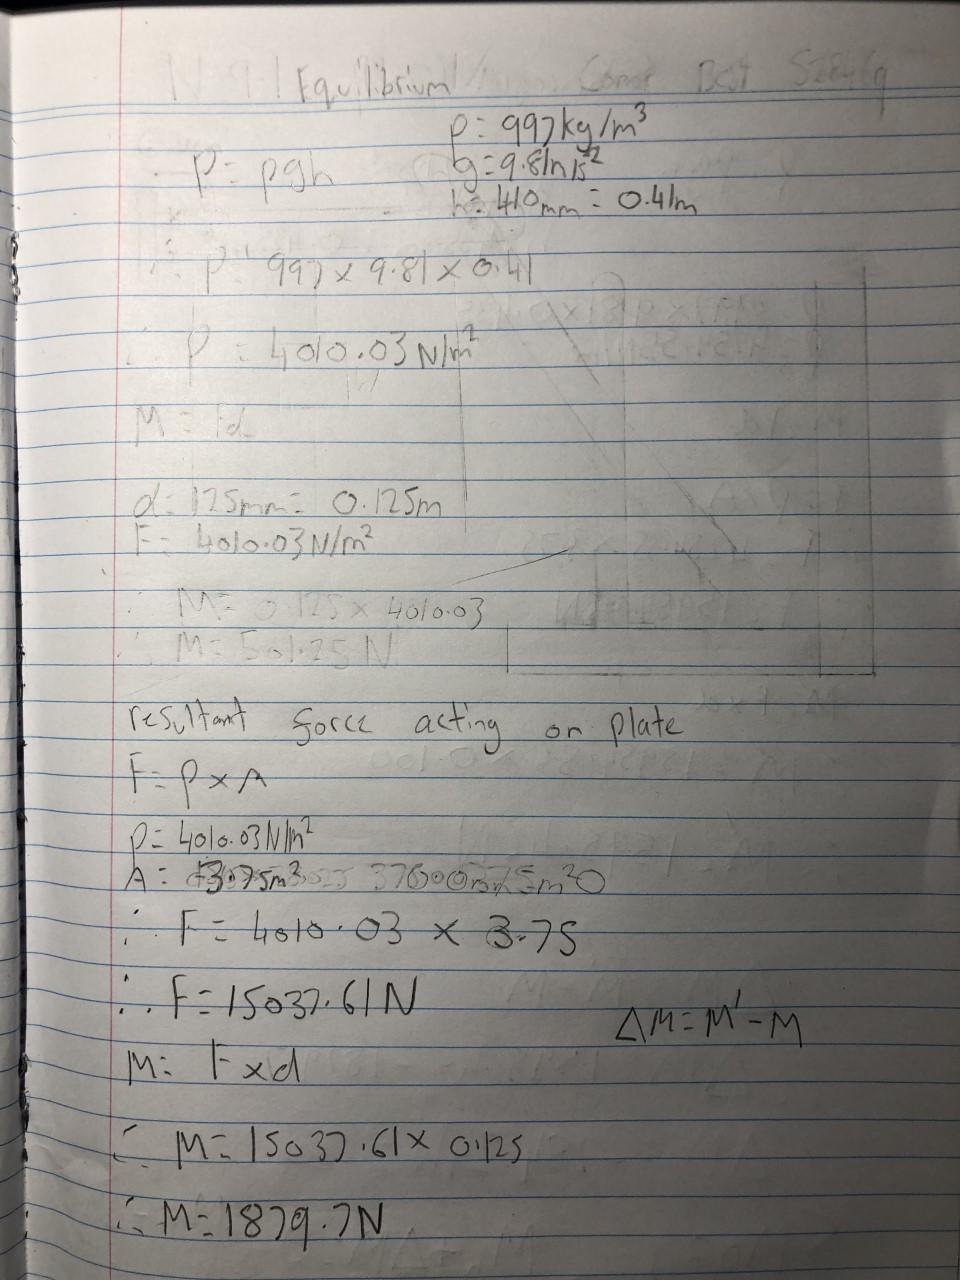 Equilibrium
ρ = 997kg/m³
P = ρgh
g = 9.81m/s²
h = 410mm = 0.41m
∴ P = 997 x 9.81 x 0.41
∴ P = 4010.03 N/m²
M = Fd
d = 125mm = 0.125m
F = 4010.03N/m²
∴ M = 0.125 x 4010.03
∴ M = 501.25 N
resultant force acting on plate
F = P x A
P = 4010.03N/m²
A = 3.75m²
∴ F = 4010.03 x 3.75
∴ F = 15037.61N
ΔM = M' - M
M = F x d
∴ M = 15037.61 x 0.125
∴ M = 1879.7N